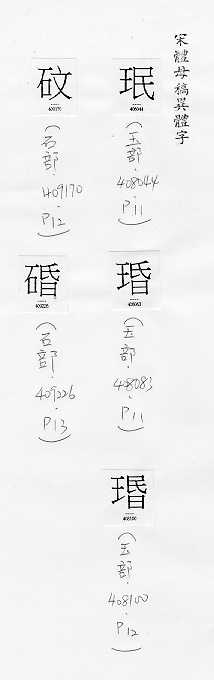 宋體母稿異體字
珉
408044
(玉部.408044.P11)
瑉
408083
(玉部.408083.P11)
408100
(玉部.408100.P12)
砇
409170
(石部.409170.P12)
碈
409226
(石部.409226.P13)